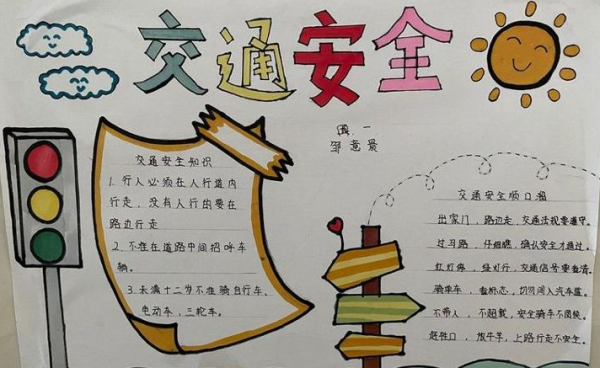 交通安全
四.一
邹意晨
交通安全知识
1.行人必须在人行道内
行走,没有人行的要在
路边行走
2.不准在道路中间招呼车
辆。
3.未满十二岁不准骑自行车、
电动车,三轮车。
交通安全顺口溜
出家门,路边走,交通法规要遵守。
过马路,仔细瞧,确认安全才通过。
红灯停,绿灯行,交通信号要看清。
骑单车,看标志,切勿闯入汽车道。
不带人,不超载,安全骑车不图快。
赶牲口,放牛羊,上路行走不安全。